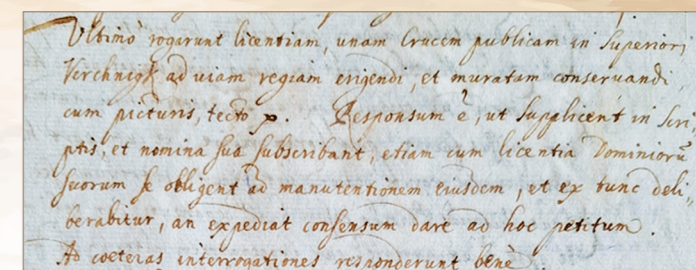 Ultimo rogarunt licentiam, unam Crucem publicam in Superiori
Verchnigk ad viam regiam erigendi, et muratam conservandi,
cum picturis, tecto p. Responsum ē, ut supplicent in Scri
ptis, et nomina sua subscribant, etiam cum licentia Dominiorū
suorum se obligent ad manutentionem eiusdem, et ex tunc deli,,
berabitur, an expediat consensum dare ad hoc petitum.
Ad coeteras interrogationes responderunt bene